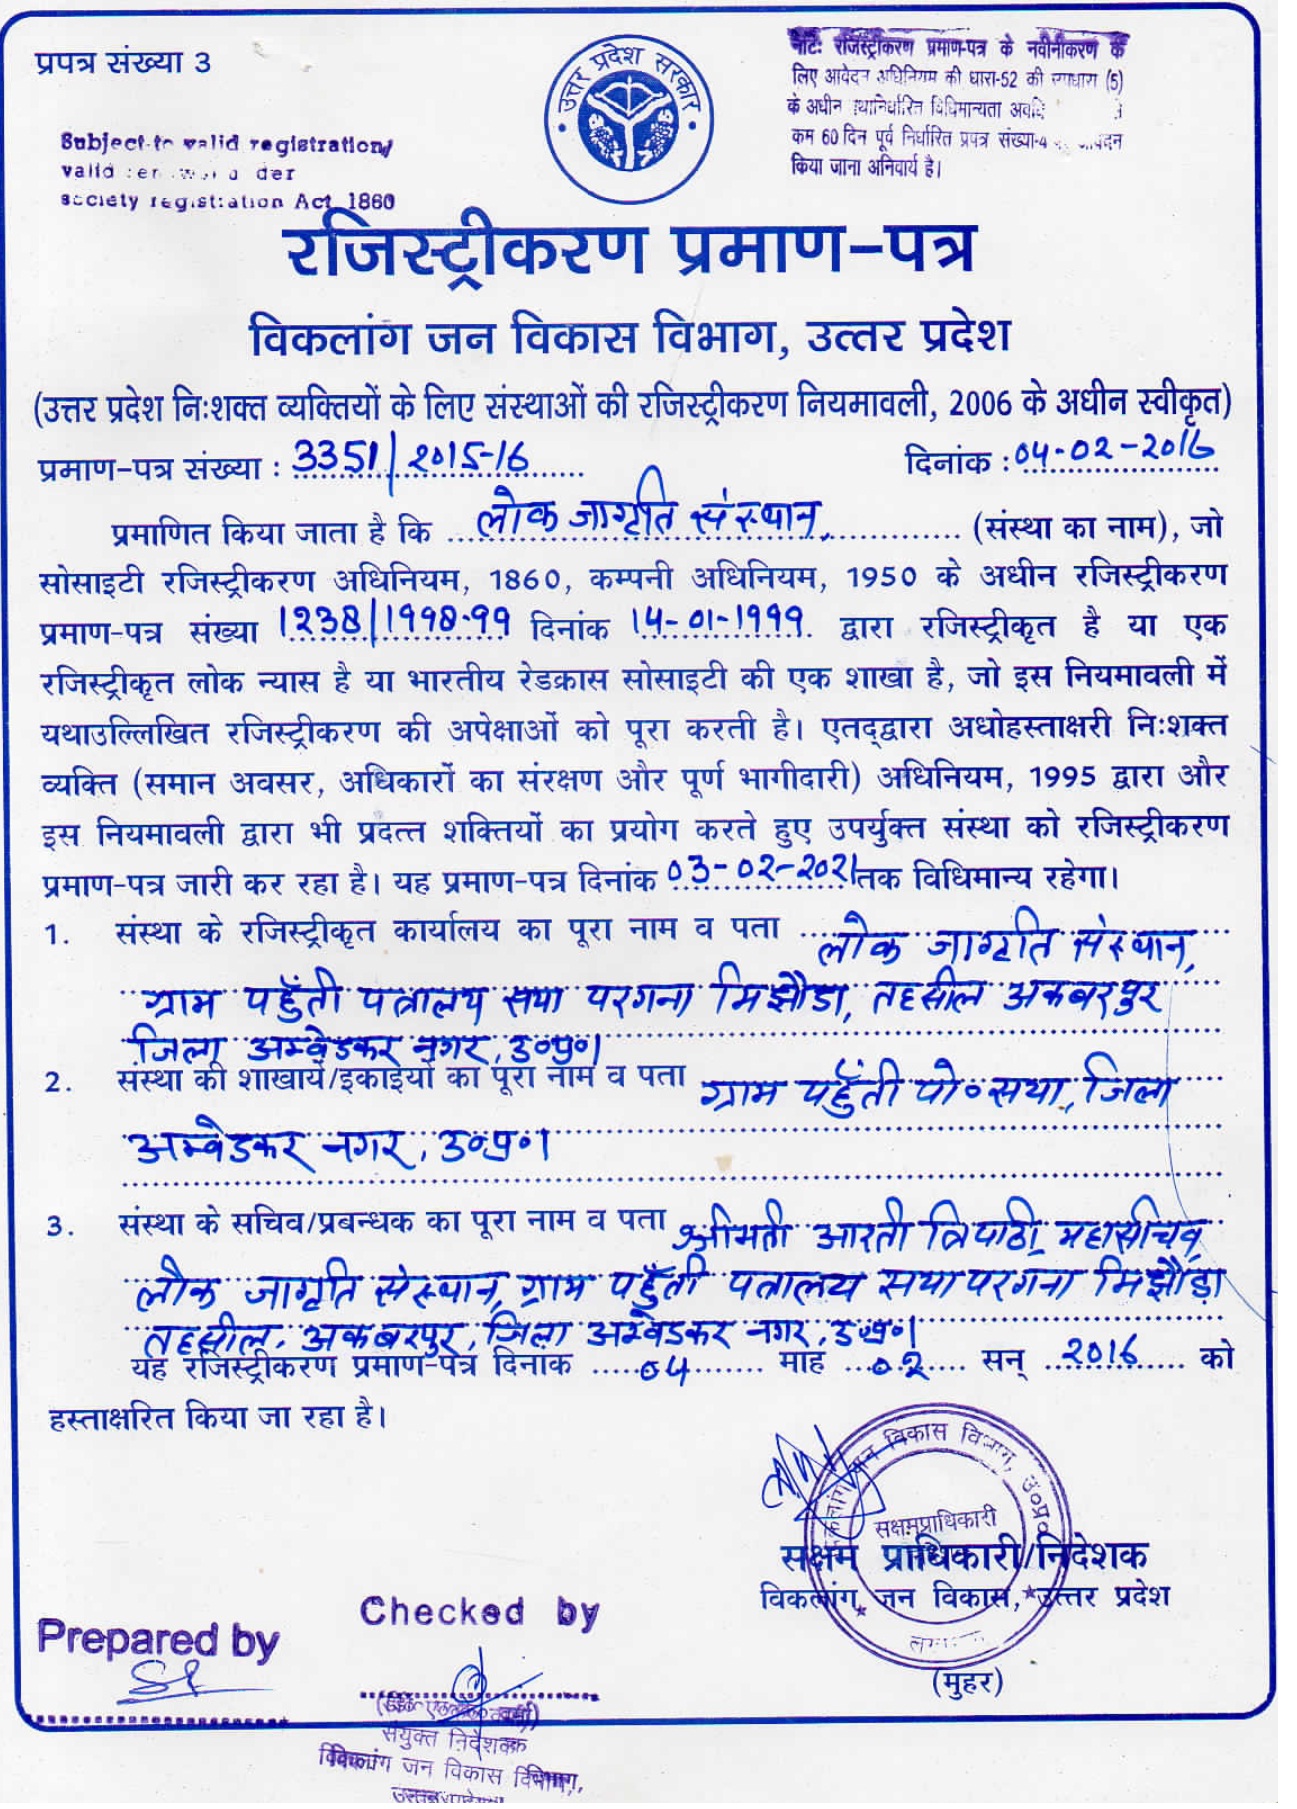 प्रपत्र संख्या 3
उत्तर प्रदेश सरकार
नोटः रजिस्ट्रीकरण प्रमाण-पत्र के नवीनीकरण के
लिए आवेदन अधिनियम की धारा-52 की उपधारा (5)
के अधीन यथानिर्धारित विधिमान्यता अवधि
कम 60 दिन पूर्व निर्धारित प्रपत्र संख्या-4 आवेदन
किया जाना अनिवार्य है।
Subject to valid registration/
valid der
society registration Act 1860
रजिस्ट्रीकरण प्रमाण-पत्र
विकलांग जन विकास विभाग, उत्तर प्रदेश
(उत्तर प्रदेश निःशक्त व्यक्तियों के लिए संस्थाओं की रजिस्ट्रीकरण नियमावली, 2006 के अधीन स्वीकृत)
प्रमाण-पत्र संख्या : 3351/2015-16 दिनांक : 04-02-2016
प्रमाणित किया जाता है कि लोक जागृति संस्थान, (संस्था का नाम), जो
सोसाइटी रजिस्ट्रीकरण अधिनियम, 1860, कम्पनी अधिनियम, 1950 के अधीन रजिस्ट्रीकरण
प्रमाण-पत्र संख्या 1238/1998-99 दिनांक 14-01-1999 द्वारा रजिस्ट्रीकृत है या एक
रजिस्ट्रीकृत लोक न्यास है या भारतीय रेडक्रास सोसाइटी की एक शाखा है, जो इस नियमावली में
यथाउल्लिखित रजिस्ट्रीकरण की अपेक्षाओं को पूरा करती है। एतद्द्वारा अधोहस्ताक्षरी निःशक्त
व्यक्ति (समान अवसर, अधिकारों का संरक्षण और पूर्ण भागीदारी) अधिनियम, 1995 द्वारा और
इस नियमावली द्वारा भी प्रदत्त शक्तियों का प्रयोग करते हुए उपर्युक्त संस्था को रजिस्ट्रीकरण
प्रमाण-पत्र जारी कर रहा है। यह प्रमाण-पत्र दिनांक 03-02-2021 तक विधिमान्य रहेगा।
1. संस्था के रजिस्ट्रीकृत कार्यालय का पूरा नाम व पता लोक जागृति संस्थान,
ग्राम पहुँती पत्रालय सया परगना मिझौडा, तहसील अकबरपुर
जिला अम्बेडकर नगर, उ०प्र०।
2. संस्था की शाखायें/इकाइयों का पूरा नाम व पता ग्राम पहुँती पो० सया, जिला
अम्बेडकर नगर, उ०प्र०।
3. संस्था के सचिव/प्रबन्धक का पूरा नाम व पता श्रीमती आरती त्रिपाठी, महासचिव,
लोक जागृति संस्थान, ग्राम पहुँती पत्रालय सया परगना मिझौड़ा
तहसील, अकबरपुर, जिला अम्बेडकर नगर, उ०प्र०।
यह रजिस्ट्रीकरण प्रमाण-पत्र दिनांक 04 माह 02 सन् 2016 को
हस्ताक्षरित किया जा रहा है।
विकलांग जन विकास विभाग, उ०प्र०
सक्षम प्राधिकारी
सक्षम प्राधिकारी/निदेशक
विकलांग जन विकास, उत्तर प्रदेश
(मुहर)
Prepared by
Checked by
संयुक्त निदेशक
विकलांग जन विकास विभाग,